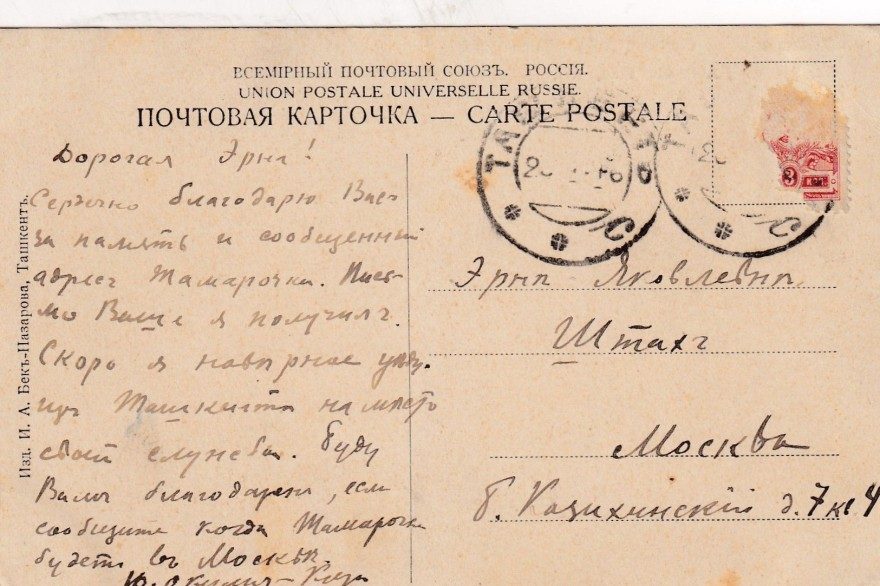 ВСЕМІРНЫЙ ПОЧТОВЫЙ СОЮЗЪ. РОССІЯ.
UNION POSTALE UNIVERSELLE RUSSIE.
ПОЧТОВАЯ КАРТОЧКА — CARTE POSTALE
Дорогая Эрна!
Сердечно благодарю Вас
за память и сообщенный
адресъ Тамарочки. Пись-
мо Ваше я получилъ.
Скоро я навѣрное уѣду
изъ Ташкента на мѣсто
своей службы. Буду
Вамъ благодаренъ, если
сообщите когда Тамарочка
будетъ въ Москвѣ.
Изд. И. А. Бекъ-Назарова, Ташкентъ.
3 КОП.
Эрнѣ Яковлевнѣ
Штахъ
Москва
Б. Козихинскій д. 7 кв 4